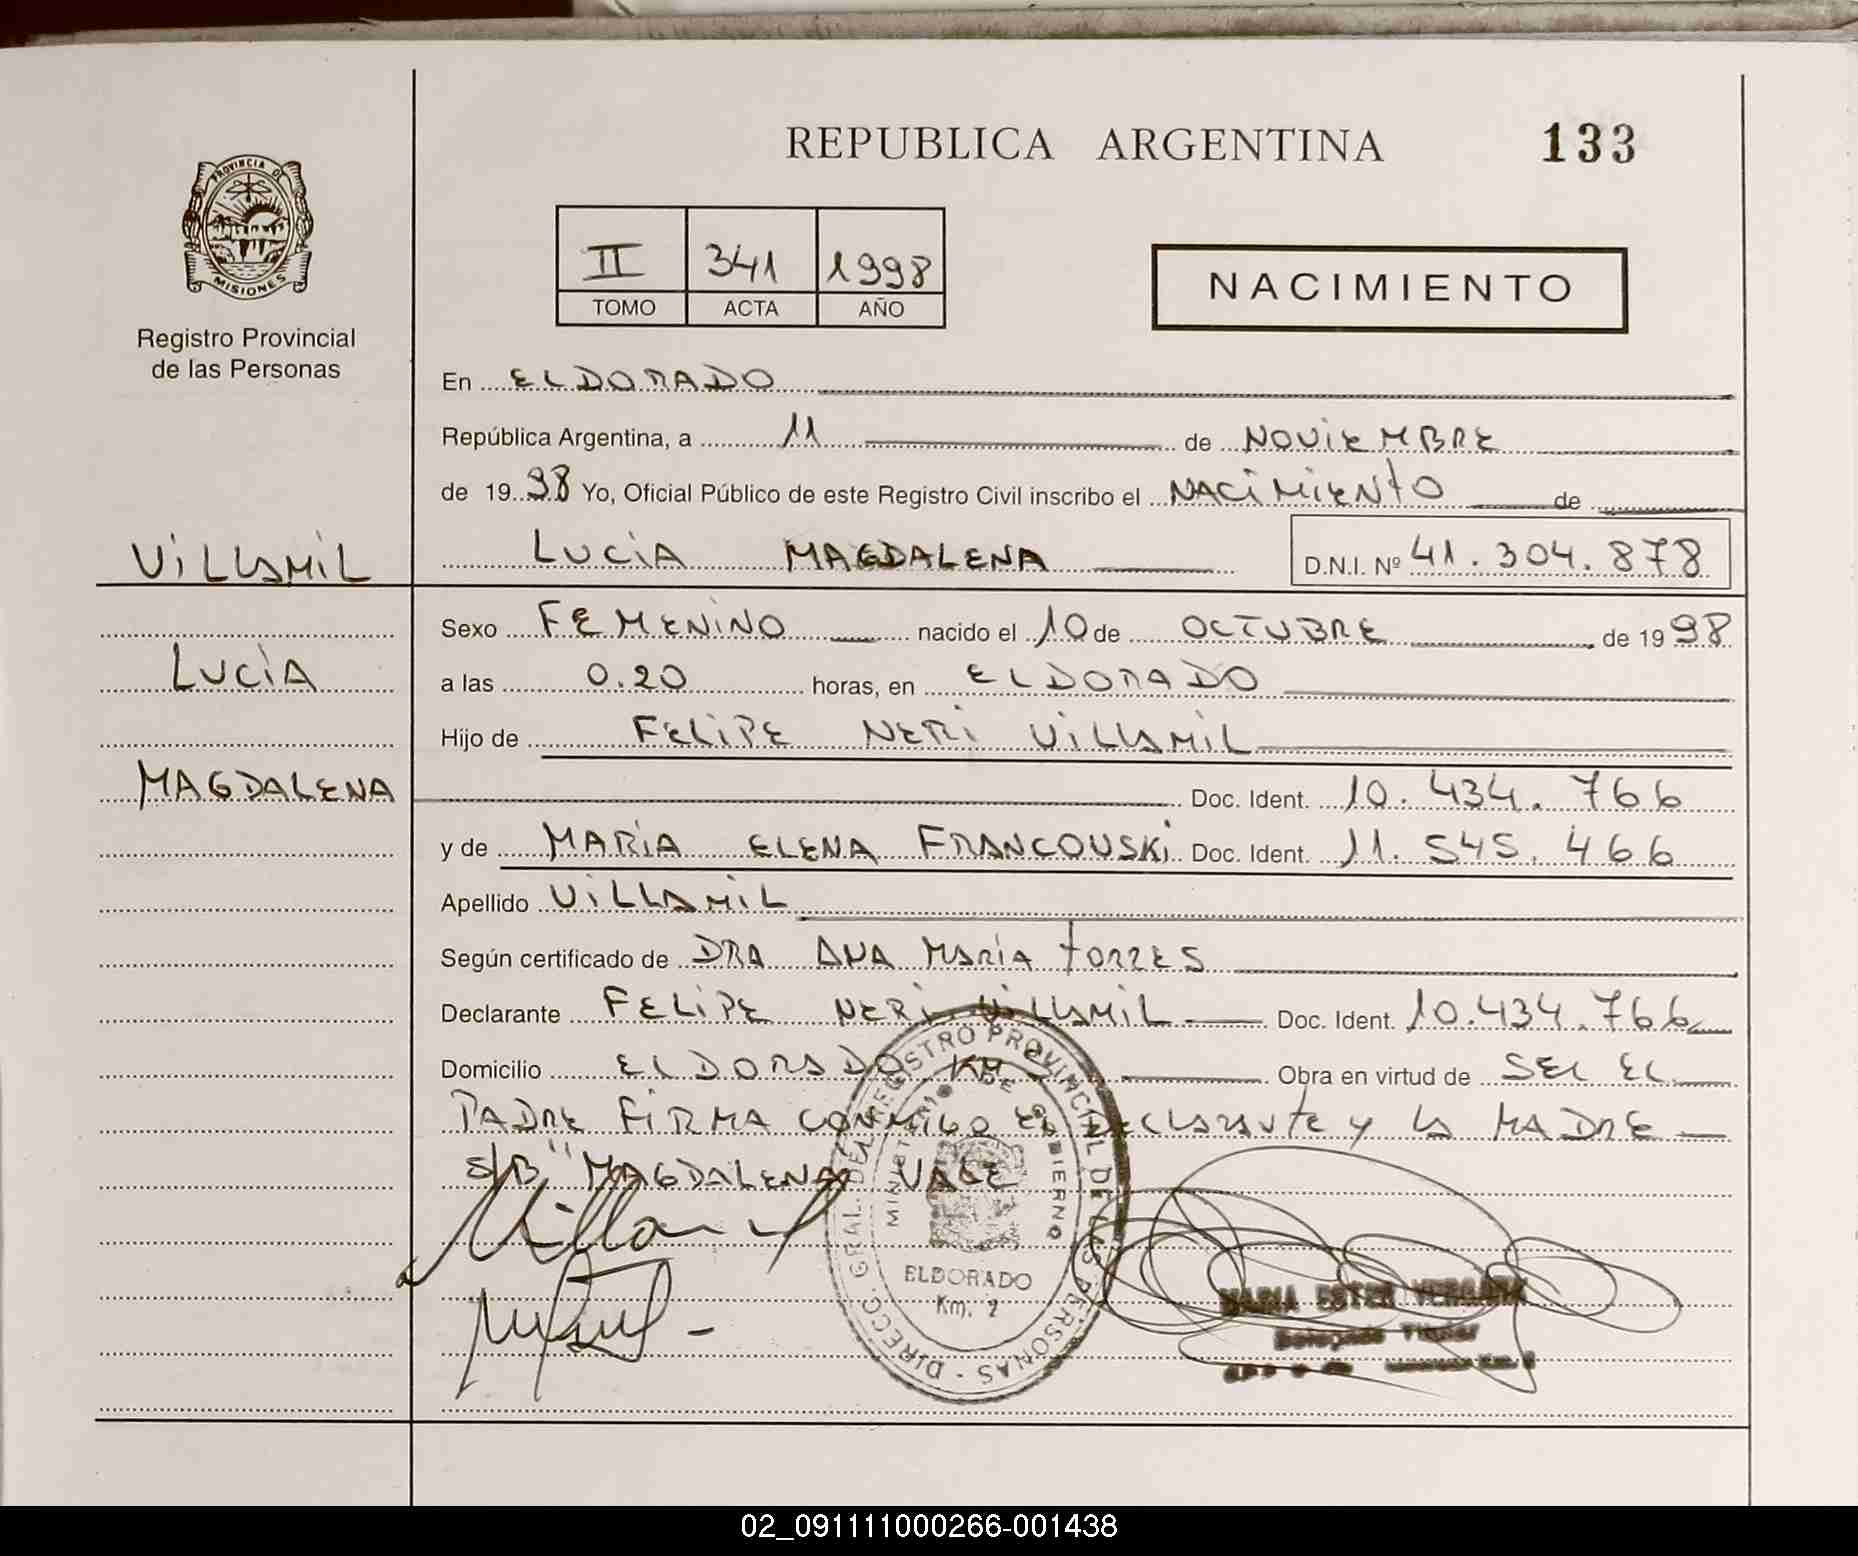 REPUBLICA ARGENTINA 133
PROVINCIA DE
MISIONES
Registro Provincial
de las Personas
II 341 1998
TOMO ACTA AÑO
NACIMIENTO
En ELDORADO
República Argentina, a 11 de NOVIEMBRE
de 1998 Yo, Oficial Público de este Registro Civil inscribo el NACIMIENTO de
VILLAMIL
LUCIA MAGDALENA D.N.I. Nº 41.304.878
Sexo FEMENINO nacido el 10 de OCTUBRE de 1998
LUCIA
a las 0.20 horas, en ELDORADO
Hijo de FELIPE NERI VILLAMIL
MAGDALENA
Doc. Ident. 10.434.766
y de MARIA ELENA FRANCOUSKI Doc. Ident. 11.545.466
Apellido VILLAMIL
Según certificado de DRA ANA MARIA TORRES
Declarante FELIPE NERI VILLAMIL Doc. Ident. 10.434.766
Domicilio ELDORADO KM 2 Obra en virtud de SER EL
PADRE FIRMA CONMIGO EL DECLARANTE Y LA MADRE
S/B "MAGDALENA" VALE
DIRECC. GRAL. DEL REGISTRO PROVINCIAL DE LAS PERSONAS
MINISTERIO DE GOBIERNO
ELDORADO
Km. 2
MARIA ESTER VERGARA
Delegada Titular
02_091111000266-001438